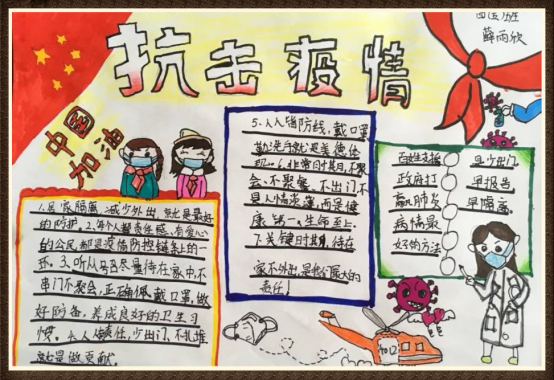 四(五)班
薛雨欣
抗击疫情
中国
加油
1.居家隔离,减少外出,就是最好
的防护。2.每个人都责任感、有爱心
的公民,都是疫情防控链条上的一
环。3.听从号召尽量待在家中,不
串门不聚会,正确佩戴口罩,做
好防备,养成良好的卫生习
惯。4.人人有责任,少出门、不扎堆
就是做贡献。
5.人人皆防线,戴口罩
勤洗手就是美德体
现。6.非常日时其月,不聚
会、不聚餐、不出门、不
是人情淡薄,而是健
康第一,生命至上
7.关键时其月,待在
家不外出,是我们最大的
责任!
百姓支援
政府打
赢肺炎
病情最
好的方法
早出门
早报告
早隔离。